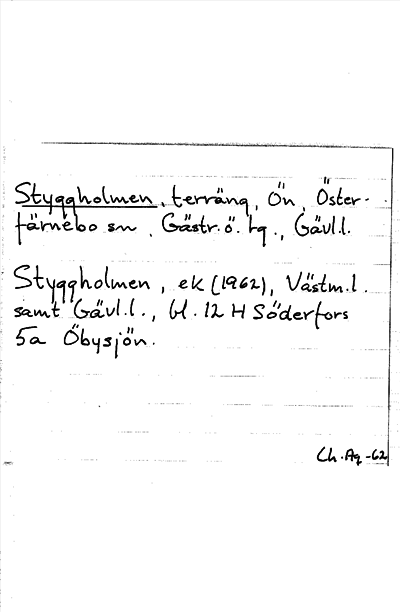 Styggholmen, terräng, Ön, Öster-
färnebo sn, Gästr.ö. hg., Gävl.l.
Styggholmen, ek (1962), Västm.l.
samt Gävl.l., bl. 12 H Söderfors
5a Öbysjön.
Ch. Ag -62